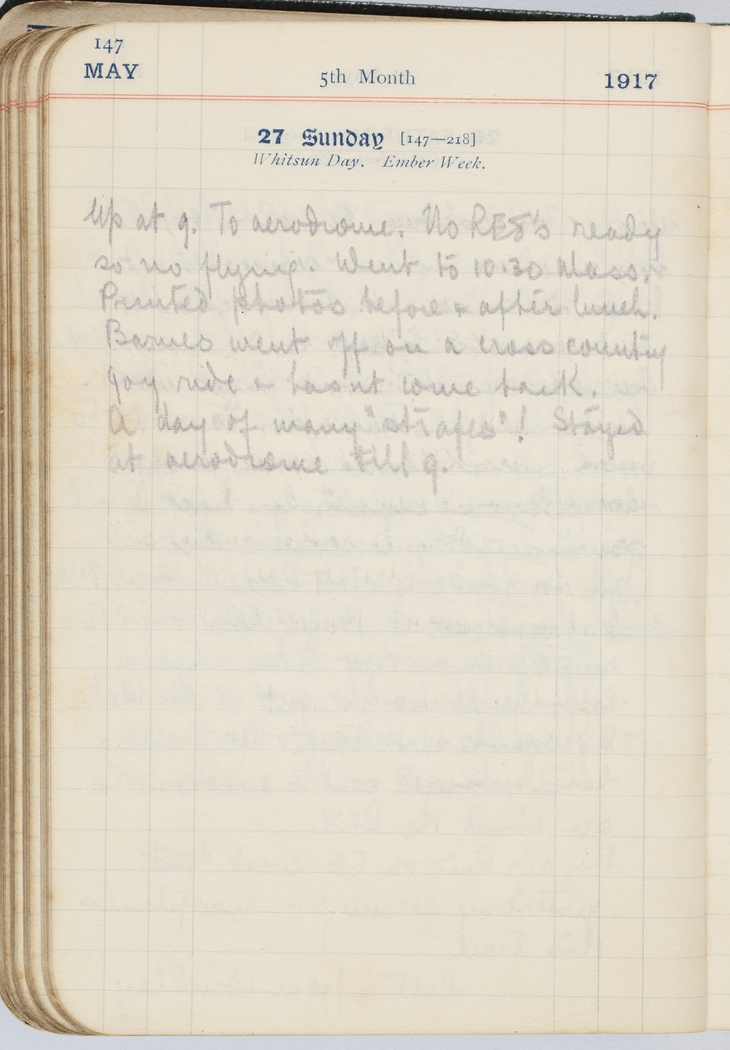 147
MAY
5th Month
1917
27 Sunday [147—218]
Whitsun Day. Ember Week.
Up at 9. To aerodrome. No RE8's ready
so no flying. Went to 10.30 Mass.
Printed photos before + after lunch.
Barnes went off on a cross country
joy ride + hasnt come back.
A day of many "strafes"! Stayed
at aerodrome till 9.